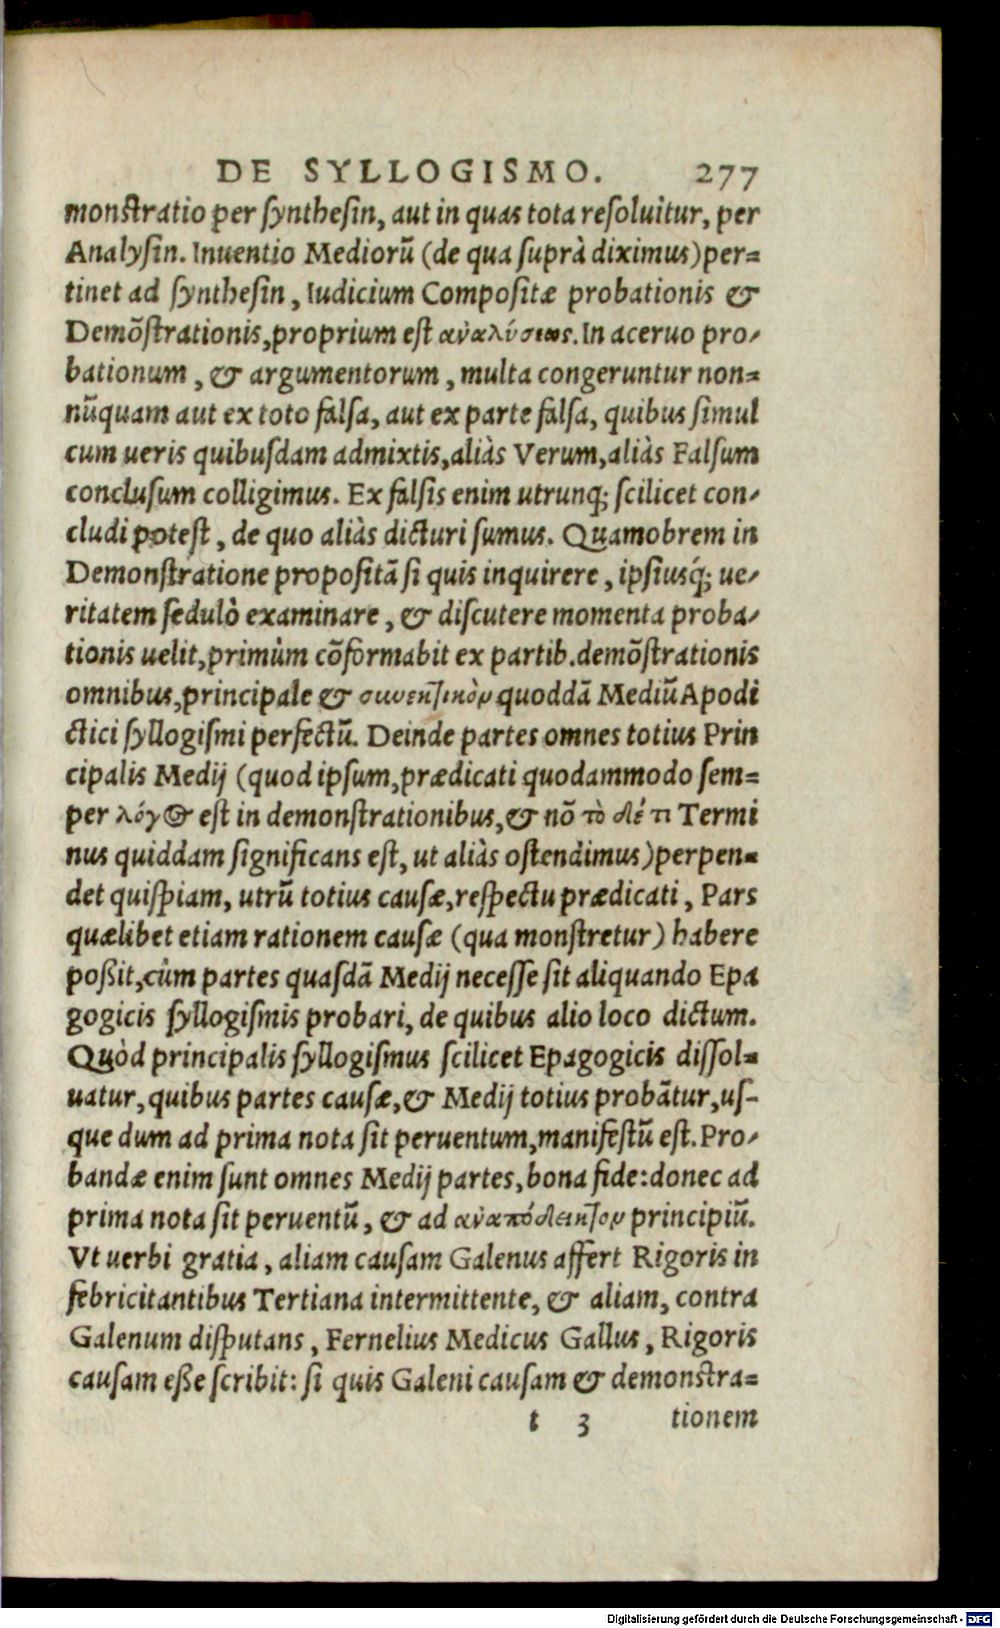 DE SYLLOGISMO. 277
monſtratio per ſyntheſin, aut in quas tota reſoluitur, per
Analyſin. Inuentio Mediorũ (de qua ſuprà diximus) per=
tinet ad ſyntheſin, Iudicium Compoſitæ probationis &
Demõſtrationis, proprium eſt ἀναλύσεως. In aceruo pro-
bationum, & argumentorum, multa congeruntur non=
nũquam aut ex toto falſa, aut ex parte falſa, quibus ſimul
cum ueris quibuſdam admixtis, aliàs Verum, aliàs Falſum
concluſum colligimus. Ex falſis enim utrunq; ſcilicet con-
cludi poteſt, de quo aliàs dicturi ſumus. Quamobrem in
Demonſtratione propoſitã ſi quis inquirere, ipſiusq́; ue-
ritatem ſedulò examinare, & diſcutere momenta proba-
tionis uelit, primùm cõformabit ex partib. demõſtrationis
omnibus, principale & συνεκτικὸν quoddã Mediũ Apodi
ctici ſyllogiſmi perfectũ. Deinde partes omnes totius Prin
cipalis Medij (quod ipſum, prædicati quodammodo ſem=
per λόγος eſt in demonſtrationibus, & nõ τὸ δέ τι Termi
nus quiddam ſignificans eſt, ut aliàs oſtendimus) perpen=
det quiſpiam, utrũ totius cauſæ, reſpectu prædicati, Pars
quælibet etiam rationem cauſæ (qua monſtretur) habere
poßit, cùm partes quaſdã Medij neceſſe ſit aliquando Epa
gogicis ſyllogiſmis probari, de quibus alio loco dictum.
Quòd principalis ſyllogiſmus ſcilicet Epagogicis diſſol=
uatur, quibus partes cauſæ, & Medij totius probãtur, uſ-
que dum ad prima nota ſit peruentum, manifeſtũ eſt. Pro-
bandæ enim ſunt omnes Medij partes, bona fide: donec ad
prima nota ſit peruentũ, & ad ἀναπόδεικτον principiũ.
Vt uerbi gratia, aliam cauſam Galenus affert Rigoris in
febricitantibus Tertiana intermittente, & aliam, contra
Galenum diſputans, Fernelius Medicus Gallus, Rigoris
cauſam eße ſcribit: ſi quis Galeni cauſam & demonſtra=
t 3 tionem
Digitalisierung gefördert durch die Deutsche Forschungsgemeinschaft - DFG